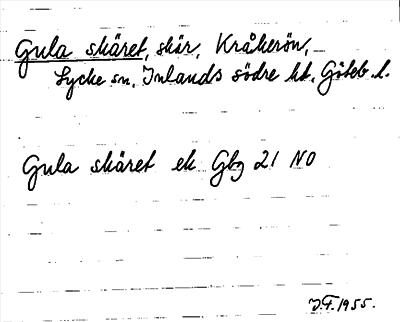 Gula skäret, skär, Kråkerön,
Lycke sn, Inlands södre hd, Göteb. l.
Gula skäret ek Gbg 21 NO
J.F. 1955.